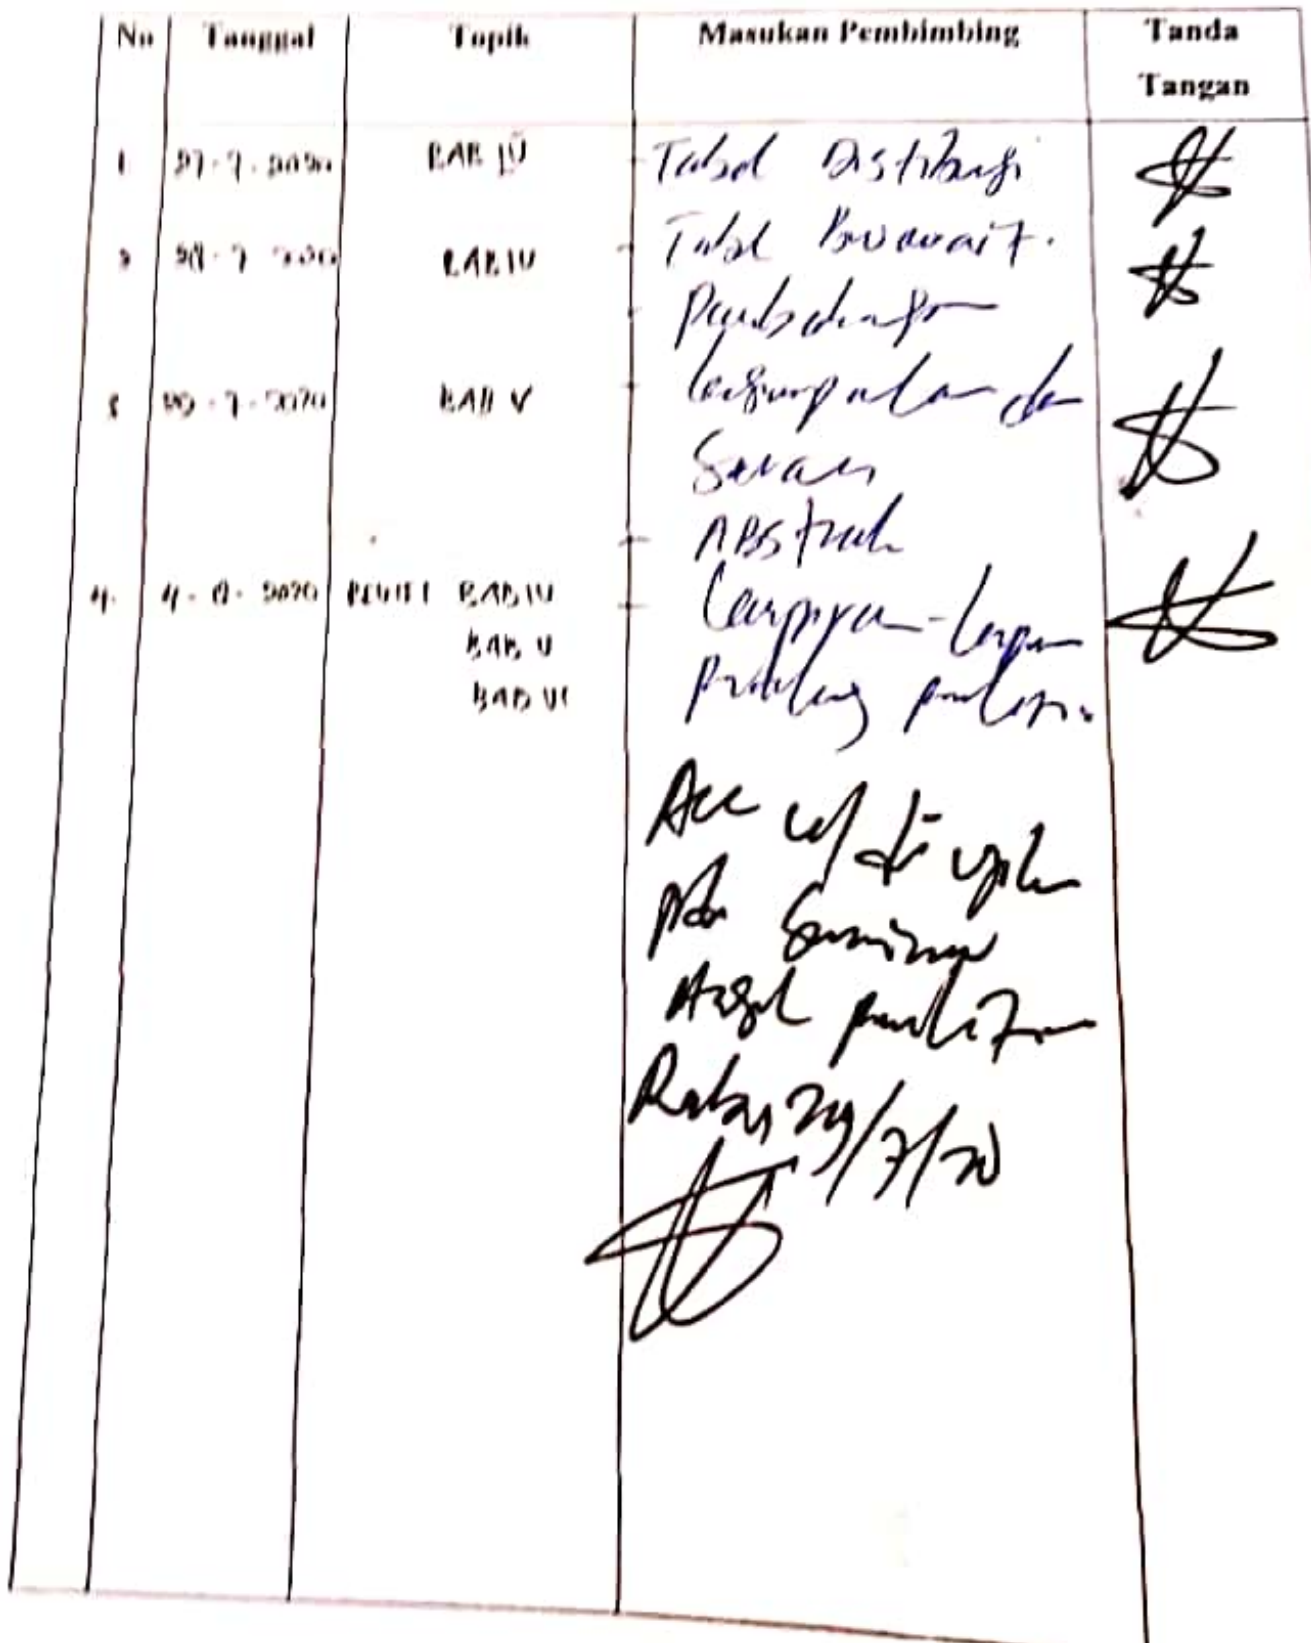 No Tanggal Topik Masukan Pembimbing Tanda Tangan
1 27-7-2020 BAB IV - Tabel Distribusi
2 28-7-2020 BAB IV - Tabel Bivariat.
- Pembahasan
3 29-7-2020 BAB V - Kesimpulan dan
Saran
- Abstrak
4. 4-8-2020 REVISI BAB IV - Lampiran-Lampiran
BAB V
BAB VI
Acc u/ di
Seminar
Hasil penelitian
Rabu, 29/7/20